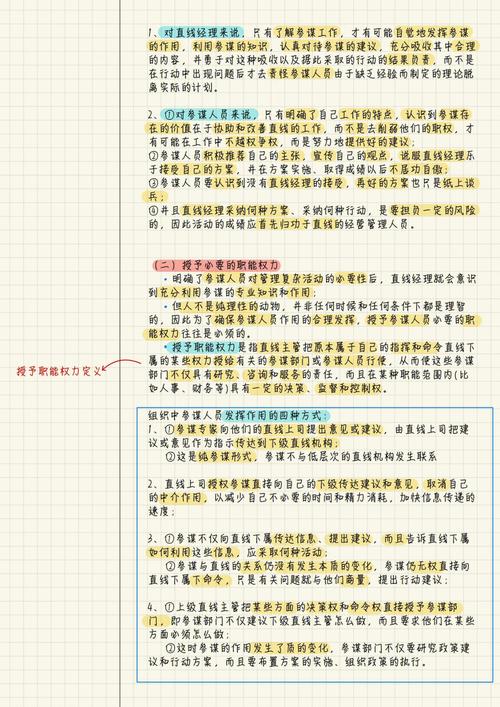 1、对直线经理来说，只有了解参谋工作，才有可能自觉地发挥参谋
的作用，利用参谋的知识，认真对待参谋的建议，充分吸收其中合理
的内容，并勇于对这种吸收以及据此采取的行动的结果负责，而不是
在行动中出现问题后才去责怪参谋人员由于缺乏经验而制定的理论脱
离实际的计划。
2、①对参谋人员来说，只有明确了自己工作的特点，认识到参谋存
在的价值在于协助和改善直线的工作，而不是去削弱他们的职权，才
有可能在工作中不越权争权，而是努力地提供好的建议；
②参谋人员积极推荐自己的主张，宣传自己的观点，说服直线经理乐
于接受自己的方案，并在方案实施、取得成绩以后不居功自傲；
③参谋人员要认识到没有直线经理的接受，再好的方案也只是纸上谈
兵；
④并且直线经理采纳何种方案、采纳何种行动，是要担负一定的风险
的，因此活动的成绩应首先归功于直线的经营管理人员。
（二）授予必要的职能权力
•明确了参谋人员对管理复杂活动的必要性后，直线经理就会意识
到充分利用参谋的专业知识和作用；
•但人不是纯理性的动物，并非任何时候和任何条件下都是理智
的，因此为了确保参谋人员作用的合理发挥，授予参谋人员必要的职
能权力往往是必须的。
•授予职能权力是指直线主管把原本属于自己的指挥和命令直线下
属的某些权力授给有关的参谋部门或参谋人员行使，从而使这些参谋
授予职能权力定义
部门不仅具有研究、咨询和服务的责任，而且在某种职能范围内(比
如人事、财务等)具有一定的决策、监督和控制权。
组织中参谋人员发挥作用的四种方式：
1、①参谋专家向他们的直线上司提出意见或建议，由直线上司把建
议或意见作为指示传达到下级直线机构；
②这是纯参谋形式，参谋不与低层次的直线机构发生联系
2、直线上司授权参谋直接向自己的下级传达建议和意见，取消自己
的中介作用，以减少自己不必要的时间和精力消耗，加快信息传递的
速度；
3、①参谋不仅向直线下属传达信息、提出建议，而且告诉直线下属
如何利用这些信息，应采取何种活动；
②参谋与直线的关系仍没有发生本质的变化，参谋仍无权直接向
直线下属下命令，只是有关问题就与他们商量，提出行动建议；
4、①上级直线主管把某些方面的决策权和命令权直接授予参谋部
门，即参谋部门不仅建议下级直线主管怎么做，而且要求他们在某些
方面必须怎么做；
②这时参谋的作用发生了质的变化，参谋部门不仅要研究政策建
议和行动方案，而且要布置方案的实施、组织政策的执行。